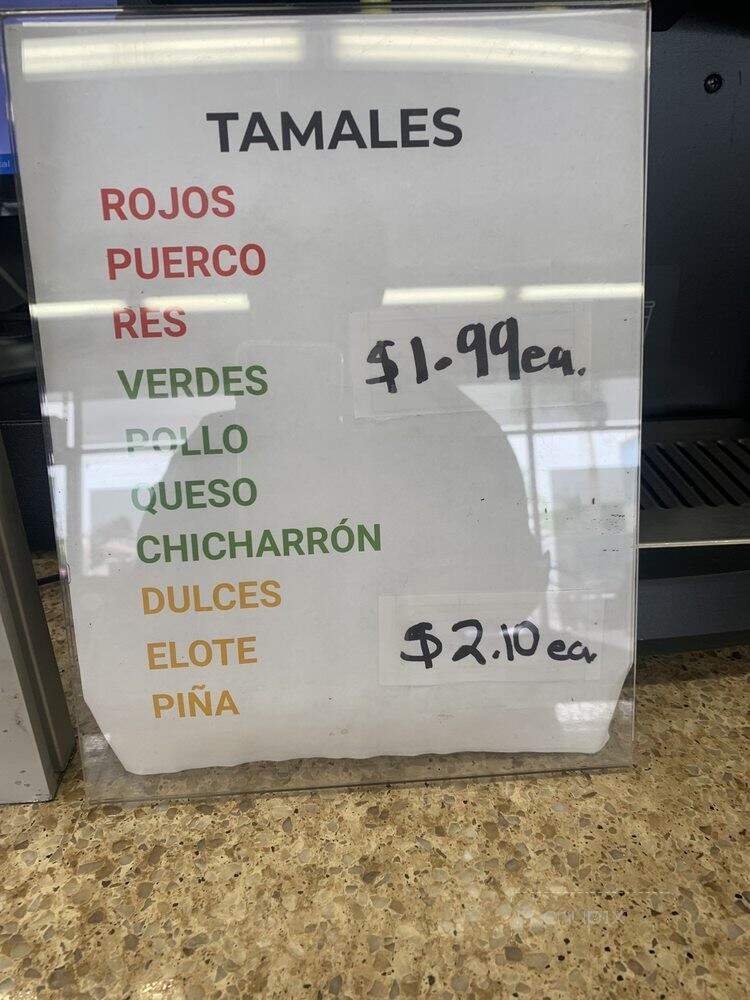 TAMALES
ROJOS
PUERCO
RES
$1.99ea.
VERDES
POLLO
QUESO
CHICHARRÓN
DULCES
ELOTE
$2.10 ea
PIÑA